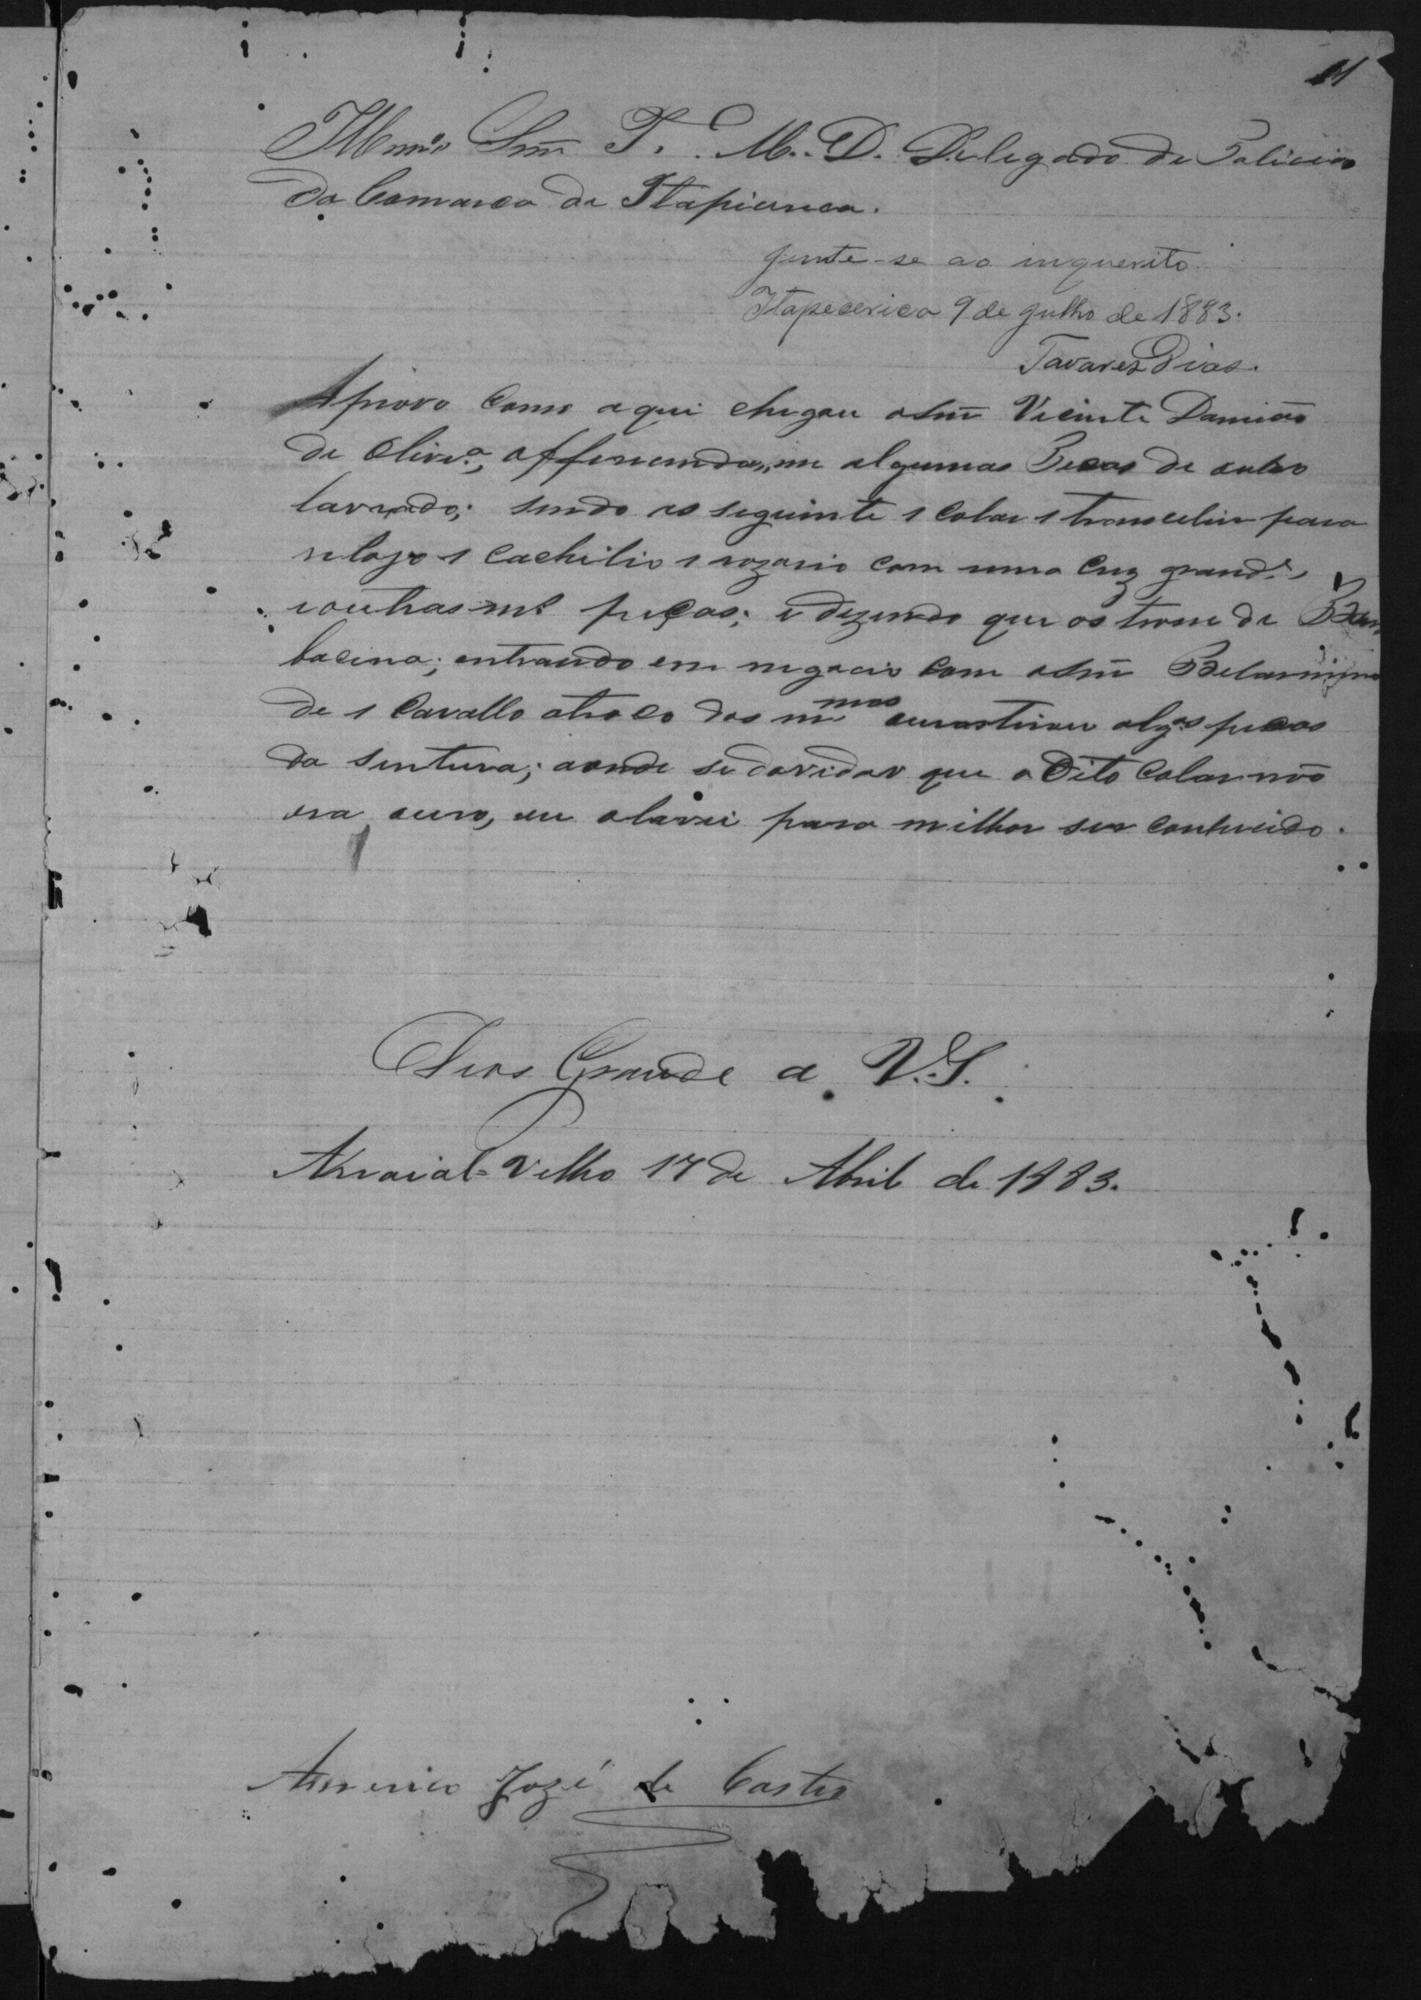 11
Illmo Snr T. M. D. Delegado de Policia
da Comarca de Itapicirica.
Junte-se ao inquerito.
Itapecerica 9 de Julho de 1883.
Tavares Dias.
Aprovo como aqui chegou o Snr Vicinte Damião
de Olivra, offerecendo,, me algumas Pecas de ouro
lavrado; sendo as seguinte 1 colar 1 trancelin para
relojo 1 cachilio 1 rozario com uma Cruz grande,
e outras ms peças; e dizendo que os trose de Bar
bacena; entrando em negocio com o Snr Belarmino
de 1 Cavallo a troco dos mmos alg.as pecas
da sentura; aonde se dovidar que o Dito Colar não
era ouro, eu o lavei para milhor ser conhecido.
Deos Grande a V.S.
Arraial-Velho 17 de Abril de 1883.
Americo Jozé de Castro